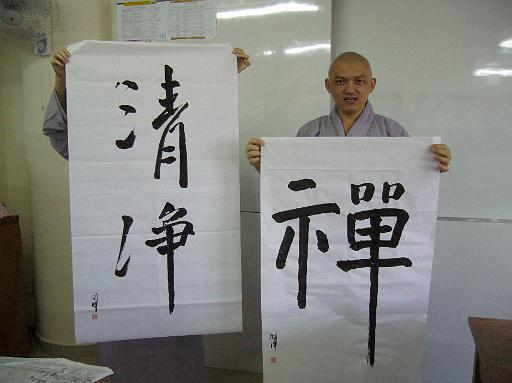 清
净
禪